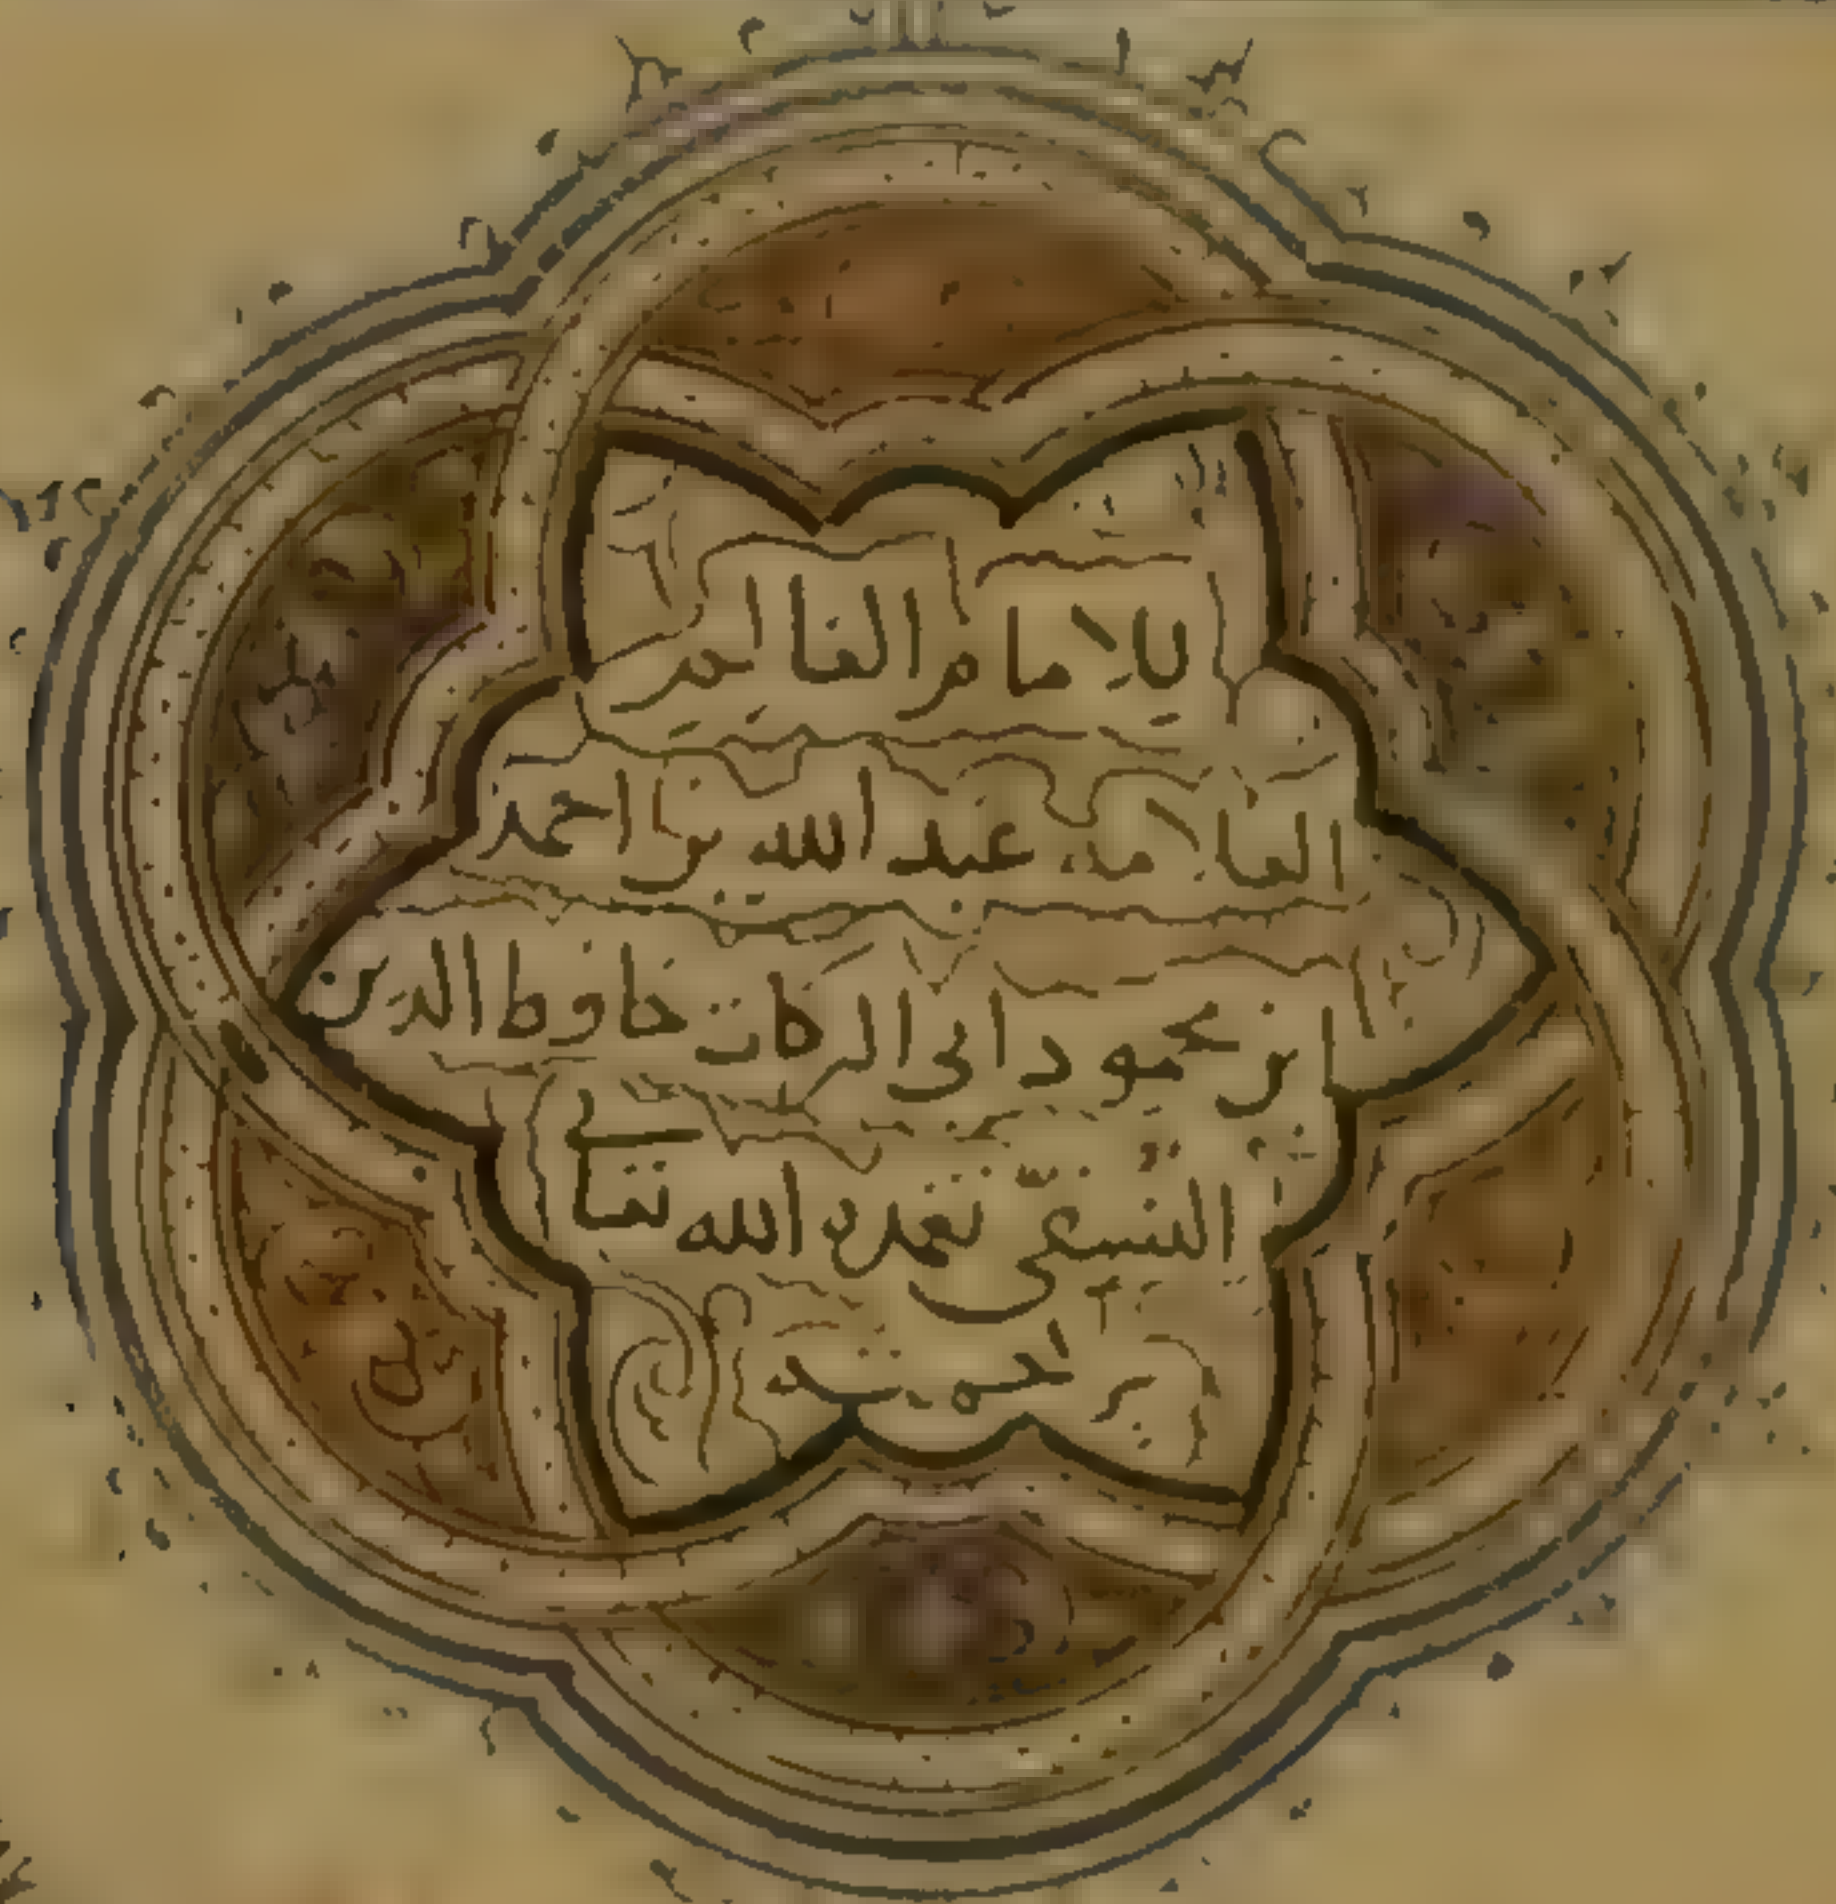 للامام العالم
العلامه عبد الله بن احمد
ابن محمود ابى البركات حافظ الدين
النسفى تغمده الله تعالى
برحمته